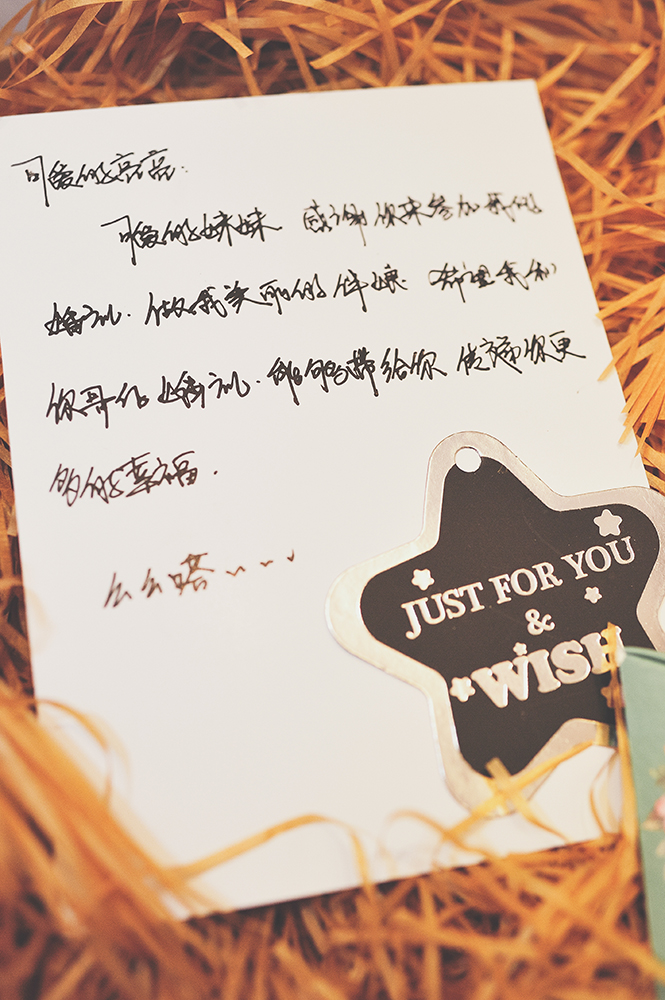 可爱的亮亮:
可爱的妹妹 感谢你来参加我们
婚礼. 做我美丽的伴娘 希望我和
你哥的婚礼. 能够带给你 传递你更
多的幸福.
么么嗒~~~
JUST FOR YOU
&
WISH